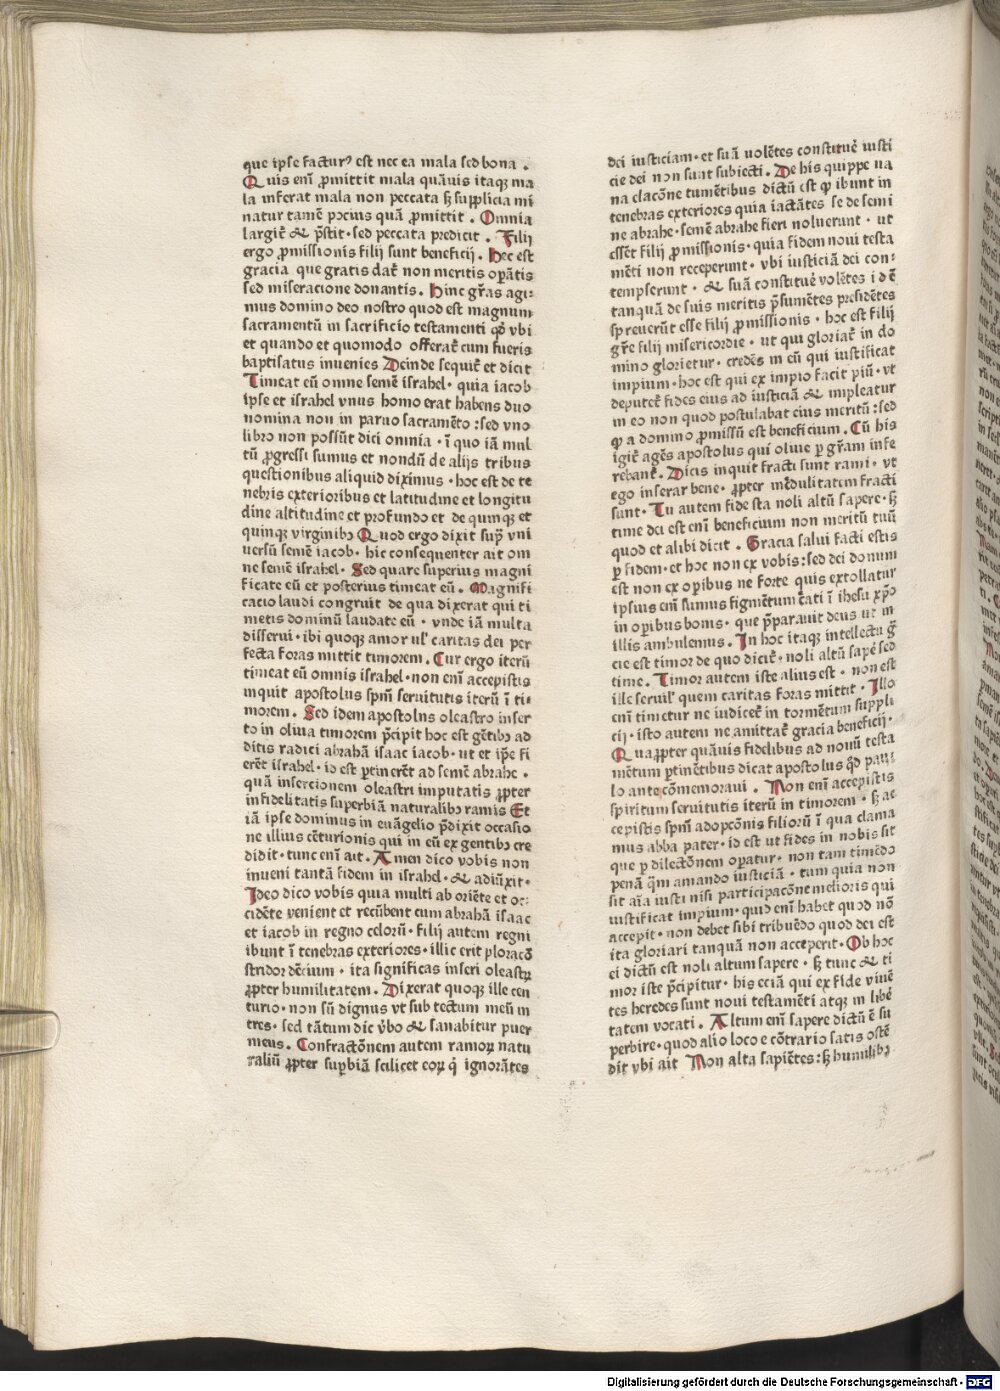 que ipse factur⁹ est nec ea mala sed bona .
Quis eni͂ ꝓmittit mala quāuis itaqꝫ ma
la inferat mala non peccata sꝫ supplicia mi
natur tamē pocius quā ꝓmittit . Omnia
largit᷑ & p̄stit · sed peccata predicit . Filij
ergo ꝓmissionis filij sunt beneficij . Hec est
gracia que gratis dat᷑ non meritis oꝑātis
sed miseracione donantis . Hinc gr̄as agi⸗
mus domino deo nostro quod est magnum
sacramentū in sacrificio testamenti qd̛ vbi
et quando et quomodo offerat᷑ cum fueris
baptisatus inuenies Deinde sequit᷑ et dicit
Timeat eū omne semē israhel · quia iacob
ipse et israhel vnus homo erat habens duo
nomina non in paruo sacramēto : sed vno
libro non possūt dici omnia · ī quo iā mul
tū ꝓgressi sumus et nondū de alijs tribus
questionibus aliquid diximus · hoc est de te
nebris exterioribus et latitudine et longitu
dine altitudine et profundo et de quinqꝫ et
quinqꝫ virginibꝫ Quod ergo dixit suꝑ vni
uersū semē iacob · hic consequenter ait om
ne semē israhel · Sed quare superius magni
ficate eū et posterius timeat eū . Magnifi
cacio laudi congruit de qua dixerat qui ti
metis dominū laudate eū · vnde iā multa
disserui · ibi quoqꝫ amor ul᷑ caritas dei per
fecta foras mittit timorem . Cur ergo iterū
timeat eū omnis israhel · non eni͂ accepistis
inquit apostolus spm̄ seruitutis iterū ī ti⸗
morem . Sed idem apostolus oleastro inser
to in oliua timorem p̄cipit hoc est gētibꝫ ad
ditis radici abrahā isaac iacob · ut et ip̄e fi
erēt israhel · id est ꝑtinerēt ad semē abrahe ·
quā insercionem oleastri imputatis ꝓpter
infidelitatis superbiā naturalibꝫ ramis Et
iā ipse dominus in euāgelio p̄dixit occasio
ne illius cēturionis qui in eū ex gentibꝫ cre
didit · tunc eni͂ ait . Amen dico vobis non
inueni tantā fidem in israhel · & adiūxit ·
Ideo dico vobis quia multi ab oriēte et oc⸗
cidēte venient et recūbent cum abrahā isaac
et iacob in regno celorū · filij autem regni
ibunt ī tenebras exteriores · illic erit ploracō
stridor dēcium · ita significas inseri oleastꝝ
ꝓpter humilitatem . Dixerat quoqꝫ ille cen
turio · non sū dignus vt sub tectum meū in
tres · sed tātum dic v̄bo & sanabitur puer
meus . Confractōnem autem ramoꝝ natu
raliū ꝓpter suꝑbiā scilicet eoꝝ q̇ ignorātes
dei iusticiam · et suā uolētes constituē iusti
cie dei non sunt subiecti . De his quippe na
na clacōne tumētibus dictū est ꝙ ibunt in
tenebras exteriores quia iactātes se de semi
ne abrahe · semē abrahe fieri noluerunt · ut
essēt filij ꝓmissionis · quia fidem noui testa
mēti non receperunt · vbi iusticiā dei con⸗
tempserunt · & suā constituē volētes i d ē
tanquā de suis meritis p̄sumētes presidētes
spreuerūt esse filij ꝓmissionis · hoc est filij
gr̄e filij misericordie · ut qui gloriat᷑ in do
mino glorietur · credēs in eū qui iustificat
impium · hoc est qui ex impio facit piū · vt
deputet᷑ fides eius ad iusticiā & impleatur
in eo non quod postulabat eius meritū : sed
ꝙ a domino ꝓmissū est beneficium . Cū his
igit᷑ agēs apostolus qui oliue ꝑ gr̄am inse
rebant᷑ . Dicis inquit fracti sunt rami · vt
ego inserar bene · ꝓpter incredulitatem fracti
sunt · Tu autem fide sta noli altū sapere · sꝫ
time dei est eni͂ beneficium non meritū tuū
quod et alibi dicit . Gracia salui facti estis
ꝑ fidem · et hoc non ex vobis : sed dei donum
est non ex oꝑibus ne forte quis extollatur
ipsius eni͂ sumus figmētum c̄ati ī ihesu xp̄o
in oꝑibus bonis · que p̄parauit deus ut in
illis ambulemus . In hoc itaqꝫ intellectu g̊
cie est timor de quo dicit᷑ · noli altū sapē sed
time . Timor autem iste alius est · non est
ille seruil᷑ quem caritas foras mittit . Illo
eni͂ timetur ne iudicet᷑ in tormētum suppli
cij · isto autem ne amittat᷑ gracia beneficij .
Quaꝓpter quāuis fidelibus ad nouū testa
mētum ꝑtinētibus dicat apostolus qd̛ pau⸗
lo ante cōmemoraui . Non eni͂ accepistis
spiritum seruitutis iterū in timorem · sꝫ ac
cepistis spm̄ adopcōnis filiorū ī qua clama
mus abba pater · id est ut fides in nobis sit
que ꝑ dilectōnem oꝑatur · non tam timēdo
penā q̄m amando iusticiā · tum quia non
sit aīa iusti nisi participacōne melioris qui
iustificat impium · quid eni͂ habet quod nō
accepit · non debet sibi tribuēdo quod dei est
ita gloriari tanquā non acceperit . Ob hoc
ei dictū est noli altum sapere · sꝫ tunc & ti
mor iste p̄cipitur · his eciā qui ex fide viuē
tes heredes sunt noui testamēti atqꝫ in libē
tatem vocati . Altum eni͂ sapere dictū ē su
perbire · quod alio loco e cōtrario satis ostē
dit vbi ait Non alta sapiētes : sꝫ humilibꝫ
Digitalisierung gefördert durch die Deutsche Forschungsgemeinschaft · DFG